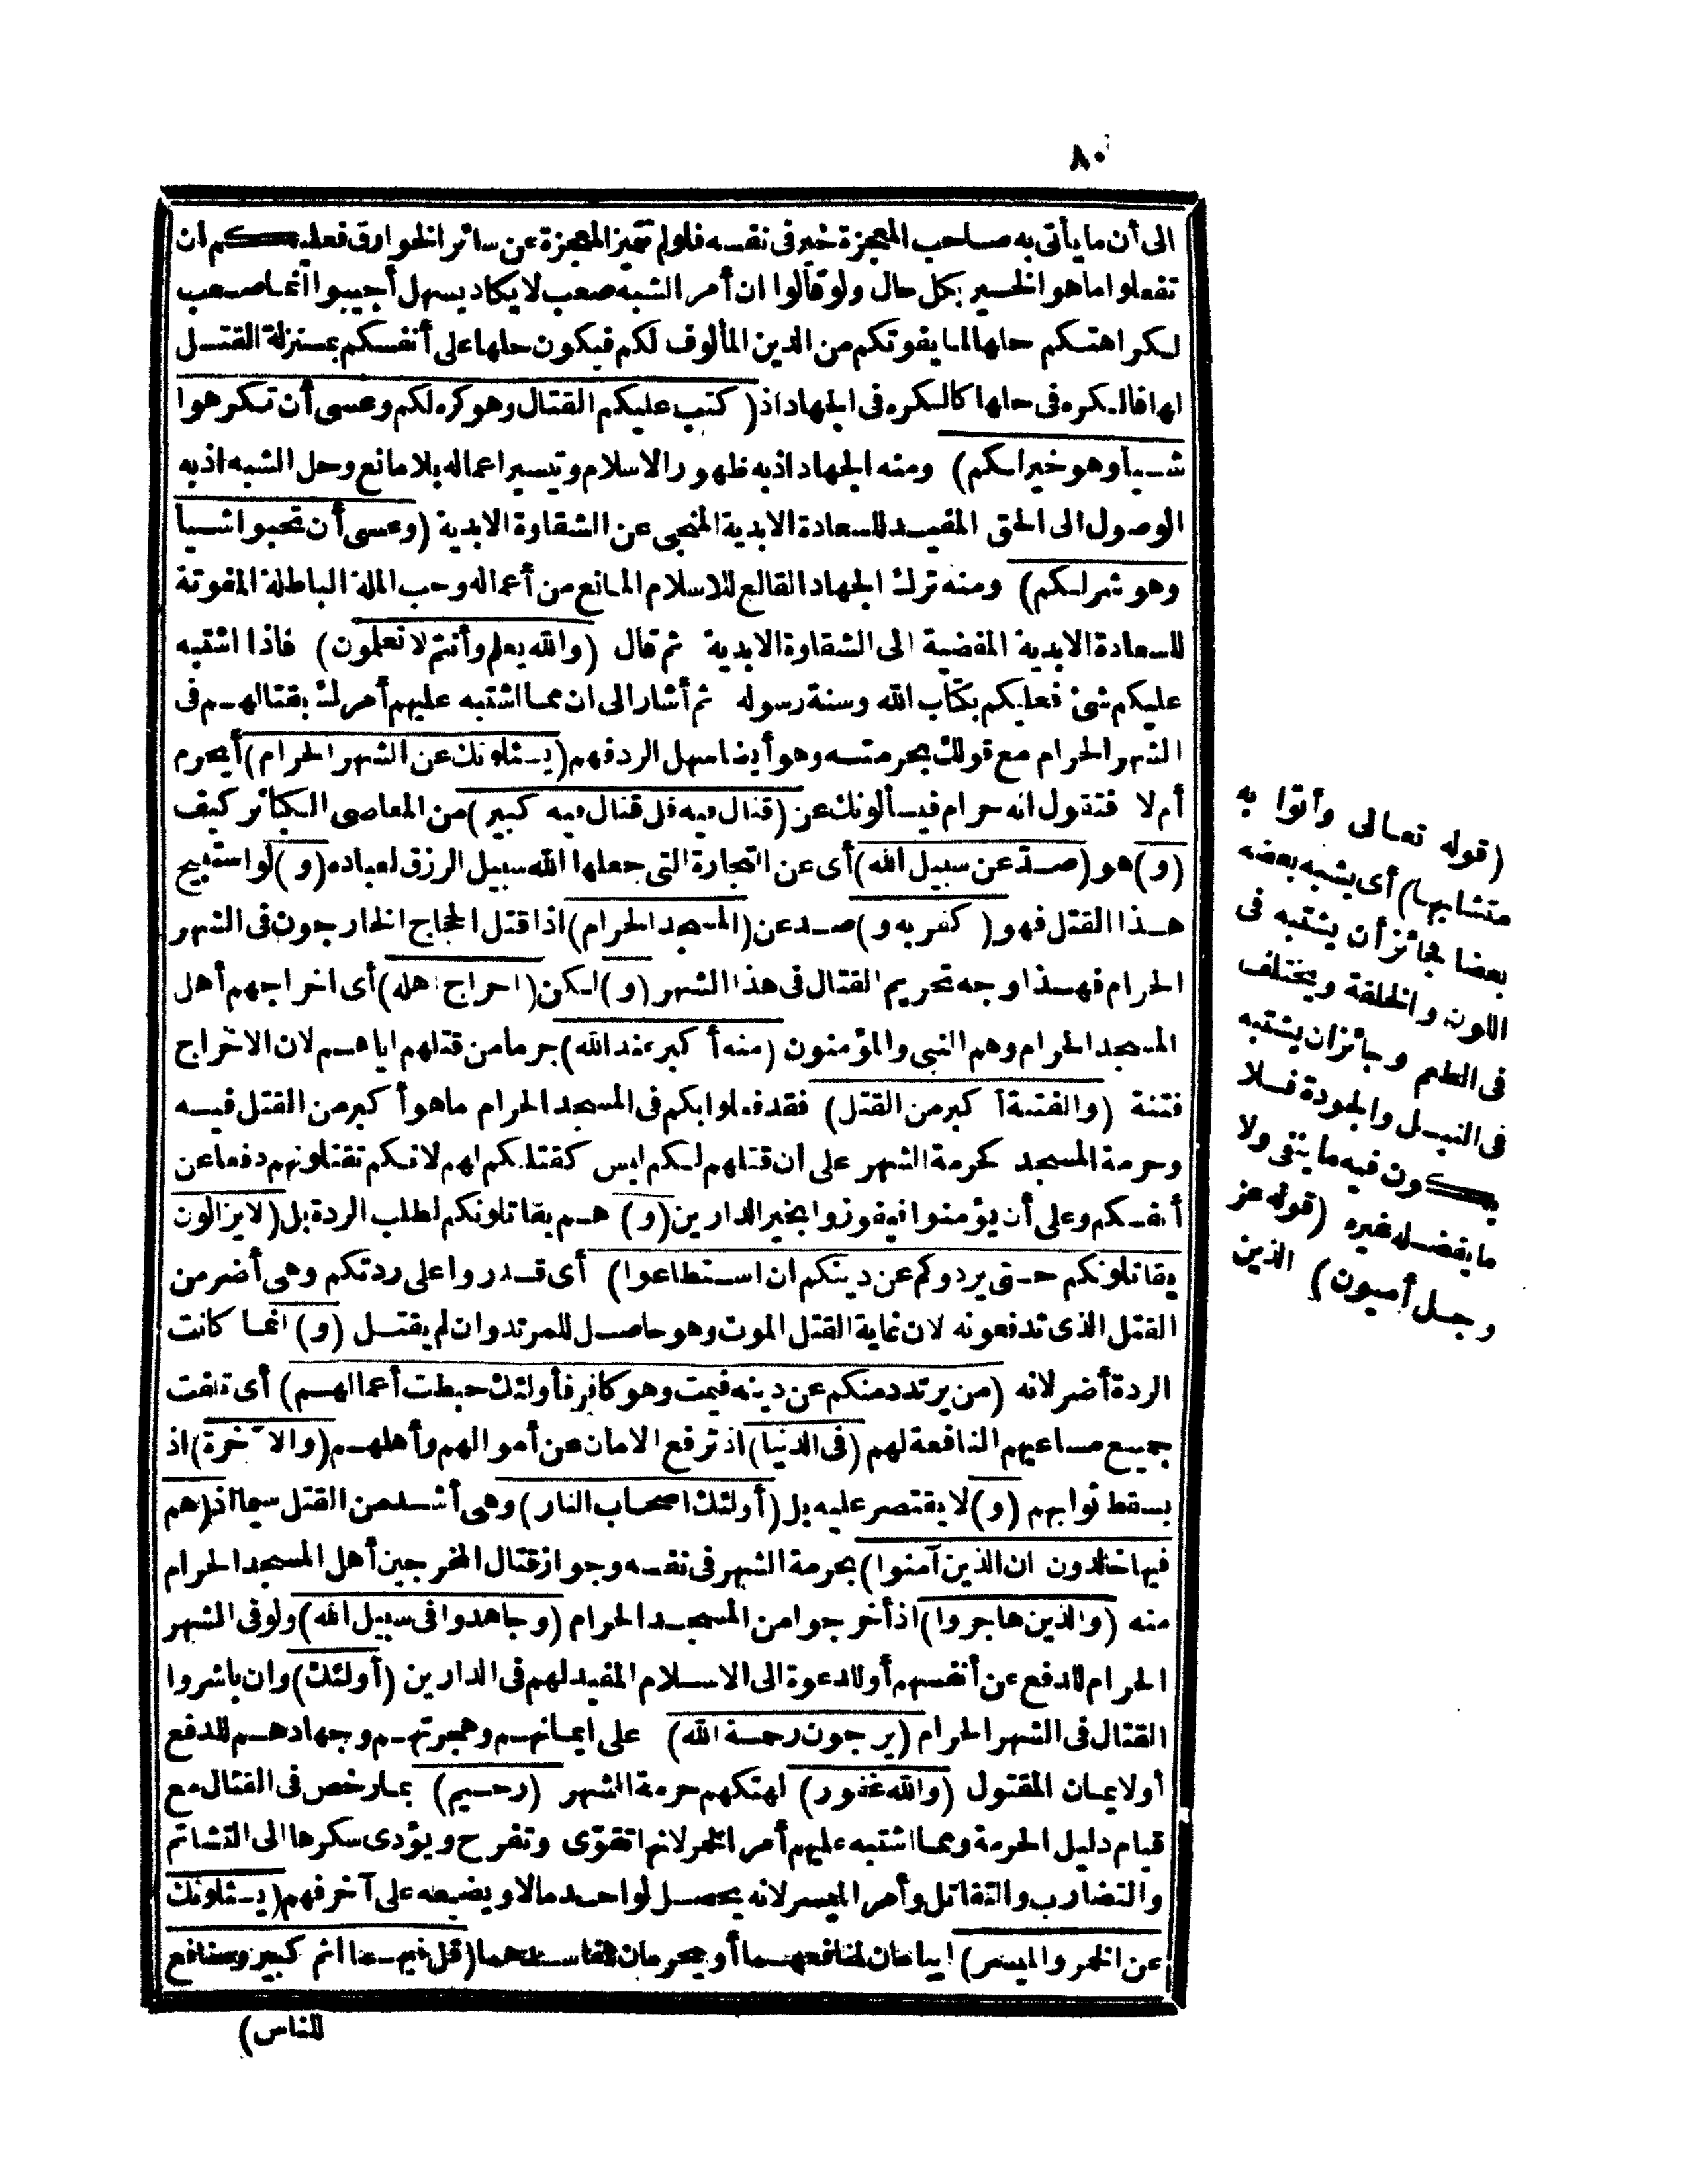 ٨٠
الى أن ما يأتى به صاحب المعجزة خير فى نفسه فلولم تتميز المعجزة عن سائر الخوارق فعليكم ان
تفعلوا ما هو الخسير بكل حال ولو قالوا ان أمر الشبه صعب لا يكاد يسهل أجيبوا انما صعب
لكراهتكم حلها لما يفوتكم من الدين المألوف لكم فيكون حلها على أنفسكم بمنزلة القتل
لها فالكره فى حلها كالكره فى الجهاد اذ (كتب عليكم القتال وهو كره لكم وعسى أن تكرهوا
شيأ وهو خير لكم) ومنه الجهاد اذ به ظهور الاسلام وتيسير اعماله بلا مانع وحل الشبه اذ به
الوصول الى الحق المفيد للسعادة الابدية المنجى عن الشقاوة الابدية (وعسى أن تحبوا شيأ
وهو شر لكم) ومنه ترك الجهاد القالع للاسلام المانع من أعماله وحب الملة الباطلة المفوتة
للسعادة الابدية المفضية الى الشقاوة الابدية ثم قال (والله يعلم وأنتم لا تعلمون) فاذا اشتبه
عليكم شئ فعليكم بكتاب الله وسنة رسوله ثم أشار الى ان مما اشتبه عليهم أمرك بقتالهم فى
الشهر الحرام مع قولك بحرمته وهو أيضا سهل الرد فهم (يسئلونك عن الشهر الحرام) أيحرم
أم لا فتقول انه حرام فيسألونك عن (قتال فيه قل قتال فيه كبير) من المعاصى الكبائر كيف
(و) هو (صد عن سبيل الله) أى عن التجارة التى جعلها الله سبيل الرزق لعباده (و) لو استبيح
هذا القتل فهو (كفر به و) صد عن (المسجد الحرام) اذا قتل الحجاج الخارجون فى الشهر
الحرام فهذا وجه تحريم القتال فى هذا الشهر (و) لكن (اخراج اهله) أى اخراجهم أهل
المسجد الحرام وهم النبى والمؤمنون (منه أكبر عند الله) جرما من قتلهم اياهم لان الاخراج
فتنة (والفتنة أكبر من القتل) فقد فعلوا بكم فى المسجد الحرام ما هو أكبر من القتل فيه
وحرمة المسجد كحرمة الشهر على ان قتلهم لكم ليس كقتلكم لهم لانكم تقتلونهم دفعا عن
أنفسكم وعلى أن يؤمنوا فيفوزوا بخير الدارين (و) هم يقاتلونكم لطلب الردة بل (لا يزالون
يقاتلونكم حتى يردوكم عن دينكم ان استطاعوا) أى قدروا على ردتكم وهى أضر من
القتل الذى تدفعونه لان غاية القتل الموت وهو حاصل للمرتد وان لم يقتل (و) انما كانت
الردة أضر لانه (من يرتدد منكم عن دينه فيمت وهو كافر فأولئك حبطت أعمالهم) أى تلفت
جميع مساعيهم النافعة لهم (فى الدنيا) اذ ترفع الامان عن أموالهم وأهلهم (والآخرة) اذ
يسقط ثوابهم (و) لا يقتصر عليه بل (أولئك اصحاب النار) وهى أشد من القتل سيما اذ (هم
فيها خالدون ان الذين آمنوا) بحرمة الشهر فى نفسه وجواز قتال المخرجين أهل المسجد الحرام
منه (والذين هاجروا) اذ أخرجوا من المسجد الحرام (وجاهدوا فى سبيل الله) ولو فى الشهر
الحرام للدفع عن أنفسهم أو للدعوة الى الاسلام المفيد لهم فى الدارين (أولئك) وان باشروا
القتال فى الشهر الحرام (يرجون رحمة الله) على ايمانهم وهجرتهم وجهادهم للدفع
أو لايمان المقتول (والله غفور) لهتكهم حرمة الشهر (رحيم) بما رخص فى القتال مع
قيام دليل الحرمة ومما اشتبه عليهم أمر الخمر لانها تقوّى وتفرح ويؤدى سكرها الى التشاتم
والتضارب والتقاتل وأمر الميسر لانه يحصل لواحد مالا ويضيعه على آخر فهم (يسئلونك
عن الخمر والميسر) ايباحان لمنافعهما أو يحرمان لمفاسدهما (قل فيهما اثم كبير ومنافع
للناس)
(قوله تعالى وأتوا به
متشابها) أى يشبه بعضه
بعضا فجائز أن يشتبه فى
اللون والخلقة ويختلف
فى الطعم وجائز ان يشتبه
فى النبل والجودة فلا
يكون فيه ما ينفى ولا
ما يفضله غيره (قوله عز
وجل أميون) الذين